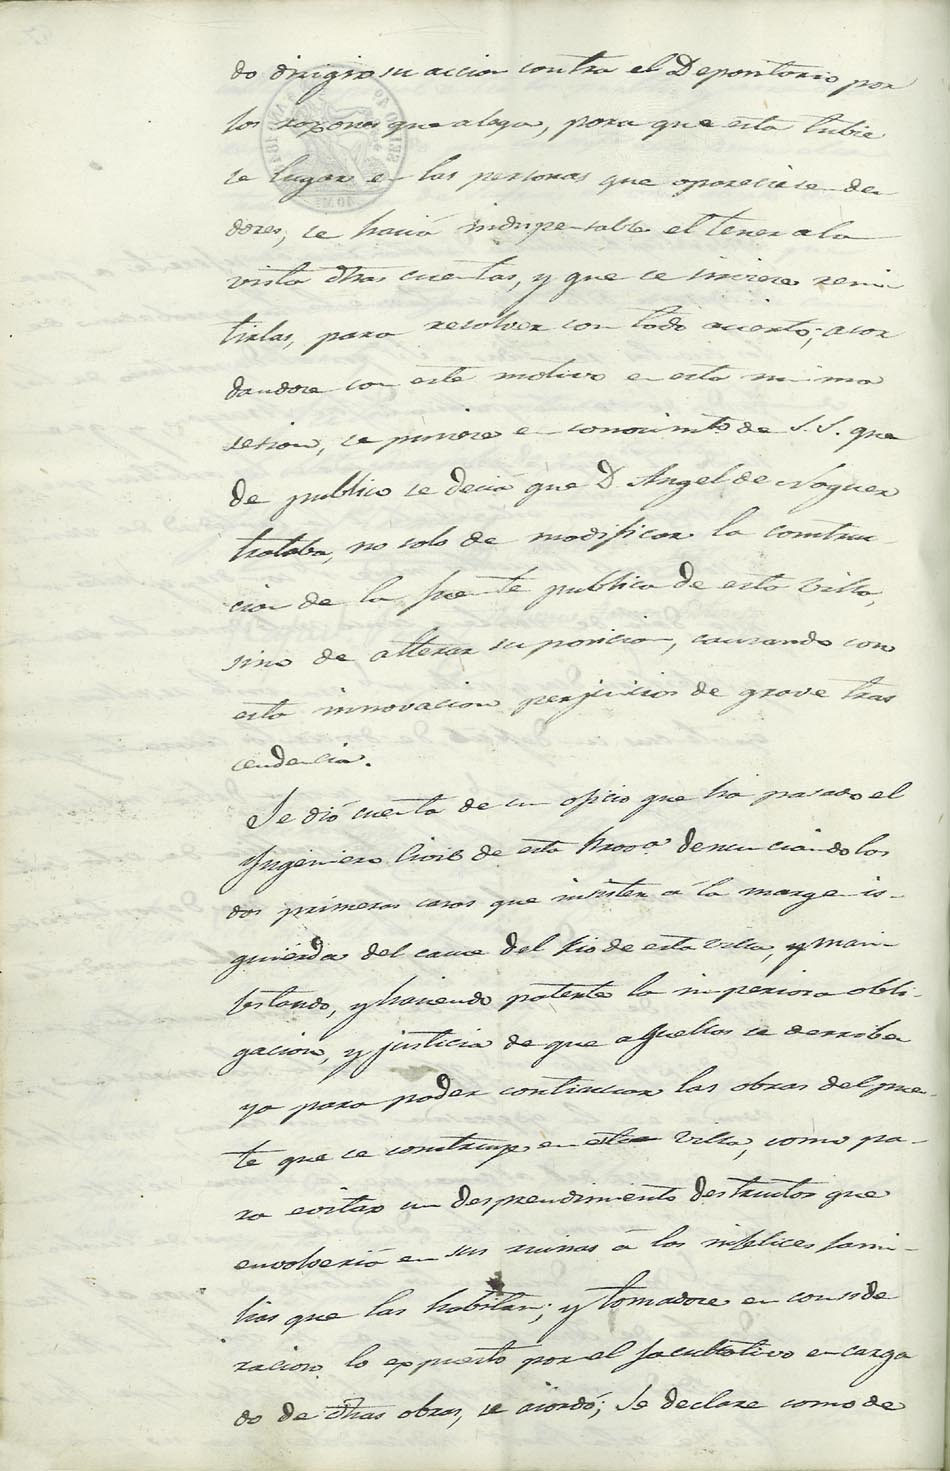 do dirigir su accion contra el Depositario por
las razones que alega, para que esta tubie
se lugar en las personas que apareciesen deu
dores, se hacia indispensable el tener a la
vista dhas cuentas, y que se sirviese remi
tirlas, para resolver con todo acierto; acor
dandose con este motivo en esta misma
sesion, se pusiese en conocimto. de S.S. que
de publico se decia que D Angel de Noguer
trataba, no solo de modificar la construc
cion de la fuente publica de esta Villa,
sino de alterar su posicion, causando con
esta innovacion perjuicios de grave tras
cendencia.
Se dió cuenta de un oficio que ha pasado el
Yngeniero Civil de esta Prova. denunciando las
dos primeras casas que insisten á la margen is-
quierda del cauce del Rio de esta Villa, y mani-
festando, y haciendo patente la imperiosa obli-
gacion, y justicia de que aquellas se derriben
ya para poder continuar las obras del puen-
te que se construye en esta Villa, como pa-
ra evitar un desprendimiento destructor que
envolveria en sus ruinas á las infelices fami-
lias que las habitan; y tomadose en conside
racion lo expuesto por el facultativo encarga
do de dhas obras, se acordó; Se declare como de